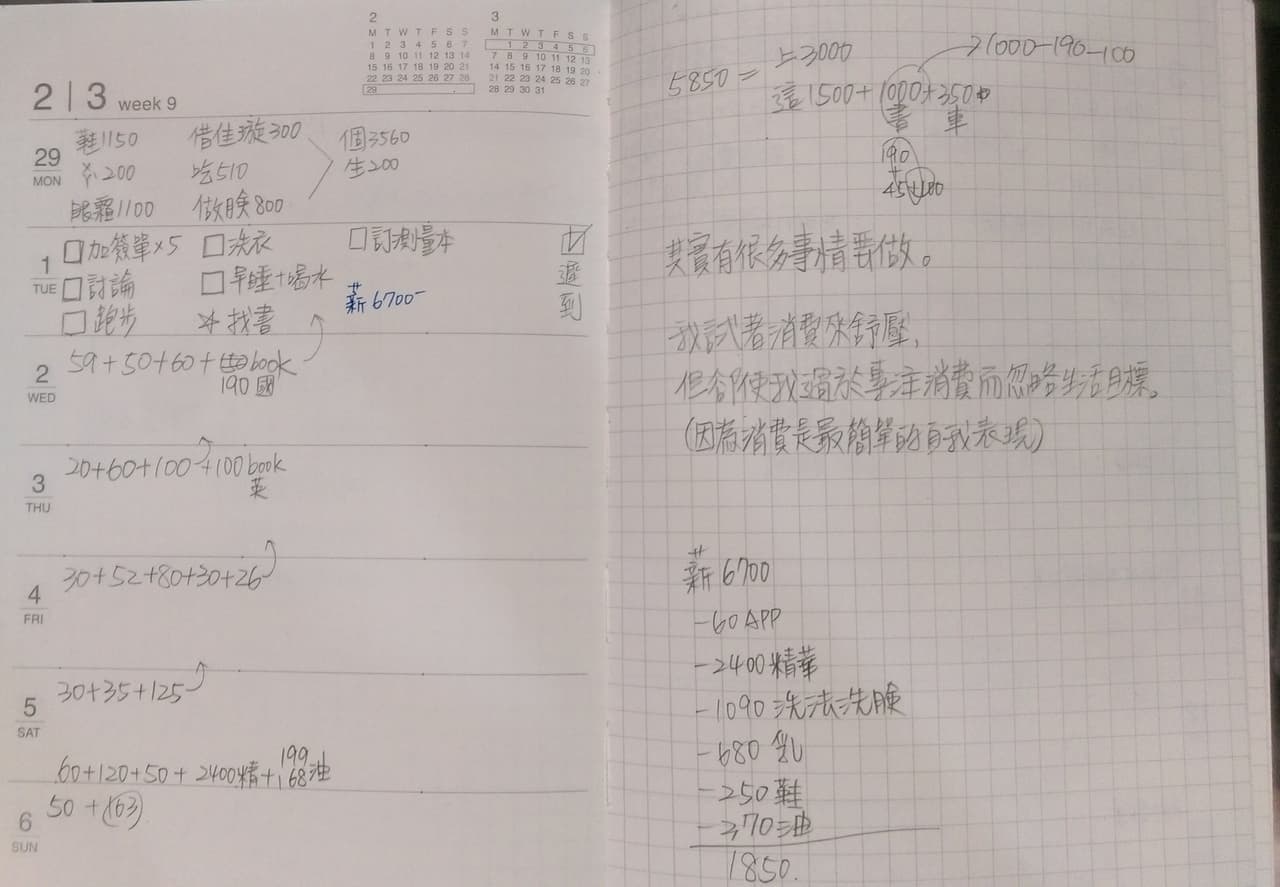 2
M T W T F S S
1 2 3 4 5 6 7
8 9 10 11 12 13 14
15 16 17 18 19 20 21
22 23 24 25 26 27 28
29
3
M T W T F S S
1 2 3 4 5 6
7 8 9 10 11 12 13
14 15 16 17 18 19 20
21 22 23 24 25 26 27
28 29 30 31
2 | 3 week 9
29 MON
鞋1150 借佳璇300 個3560
200 吃510 生200
眼霜1100 做臉800
1 TUE
加簽單×5 洗衣 訂測量本
討論 早睡+喝水 薪6700-
跑步 找書
遲到
2 WED
59+50+60+ book
190國
3 THU
20+60+100+100book
英
4 FRI
30+52+80+30+26
5 SAT
30+35+125
199
60+120+50+2400精+168油
6 SUN
50+163
5850=上3000
1000-190-100
這1500+1000+350
書 車
190
45+100
其實有很多事情要做。
我試著消費來舒壓,
但卻使我過於專注消費而忽略生活目標。
(因為消費是最簡單的自我表現)
薪6700
-60 APP
-2400精華
-1090洗法洗臉
-680乳
-250鞋
-370油
1850.